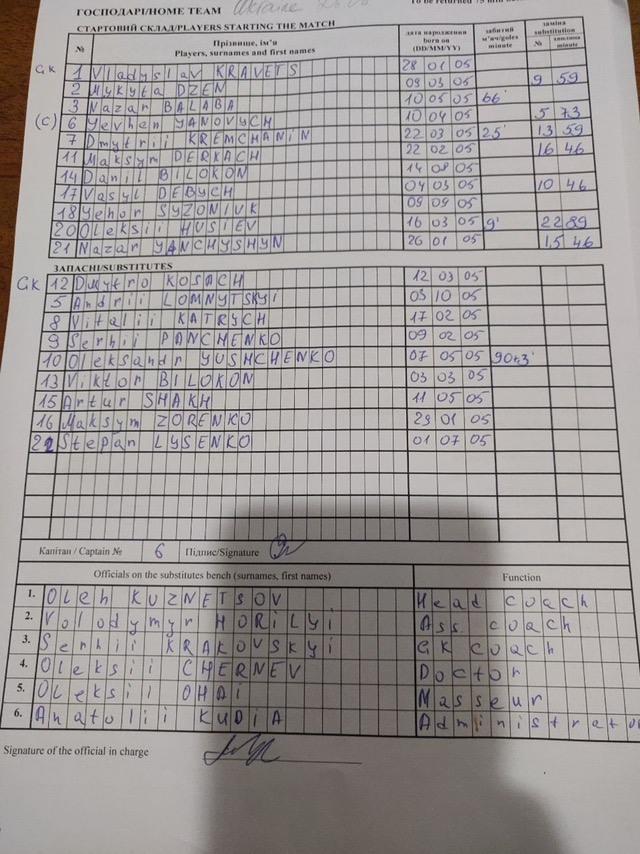 ГОСПОДАРІ/HOME TEAM Ukraine
To be returned 75 min
СТАРТОВИЙ СКЛАД/PLAYERS STARTING THE MATCH
№ Прізвище, ім'я Players, surnames and first names дата народження born on (DD/MM/YY) забитий м'яч/goles minute заміна substitution № хвилина minute
GK 1 Vladyslav KRAVETS 28 01 05
2 Mykyta DZEN 09 03 05 9 59
3 Nazar BALABA 10 05 05 66'
(C) 6 Yevhen YANOVYCH 10 04 05 5 73
7 Dmytrii KREMCHANIN 22 03 05 25' 13 59
11 Maksym DERKACH 22 02 05 16 46
14 Danil BILOKON 14 08 05
17 Vasyl DEBYCH 04 03 05 10 46
18 Yehor SYZONIUK 09 09 05
20 Oleksii HUSIEV 16 03 05 9' 22 89
21 Nazar YANCHYSHYN 26 01 05 15 46
ЗАПАСНІ/SUBSTITUTES
GK 12 Dmytro KOSACH 12 03 05
5 Andrii LOMNYTSKYi 03 10 05
8 Vitalii KATRYCH 17 02 05
9 Serhii PANCHENKO 09 02 05
10 Oleksandr YUSHCHENKO 07 05 05 90+3'
13 Viktor BILOKON 03 03 05
15 Artur SHAKH 11 05 05
16 Maksym ZORENKO 29 01 05
22 Stepan LYSENKO 01 07 05
Капітан / Captain № 6 Підпис/Signature
Officials on the substitutes bench (surnames, first names) Function
1. Oleh KUZNETSOV Head coach
2. Volodymyr HORiLYi Ass. coach
3. Serhii KRAKOVSKYi GK coach
4. Oleksii CHERNEV Doctor
5. Oleksii OHAi Masseur
6. Anatolii KUDiA Administrator
Signature of the official in charge